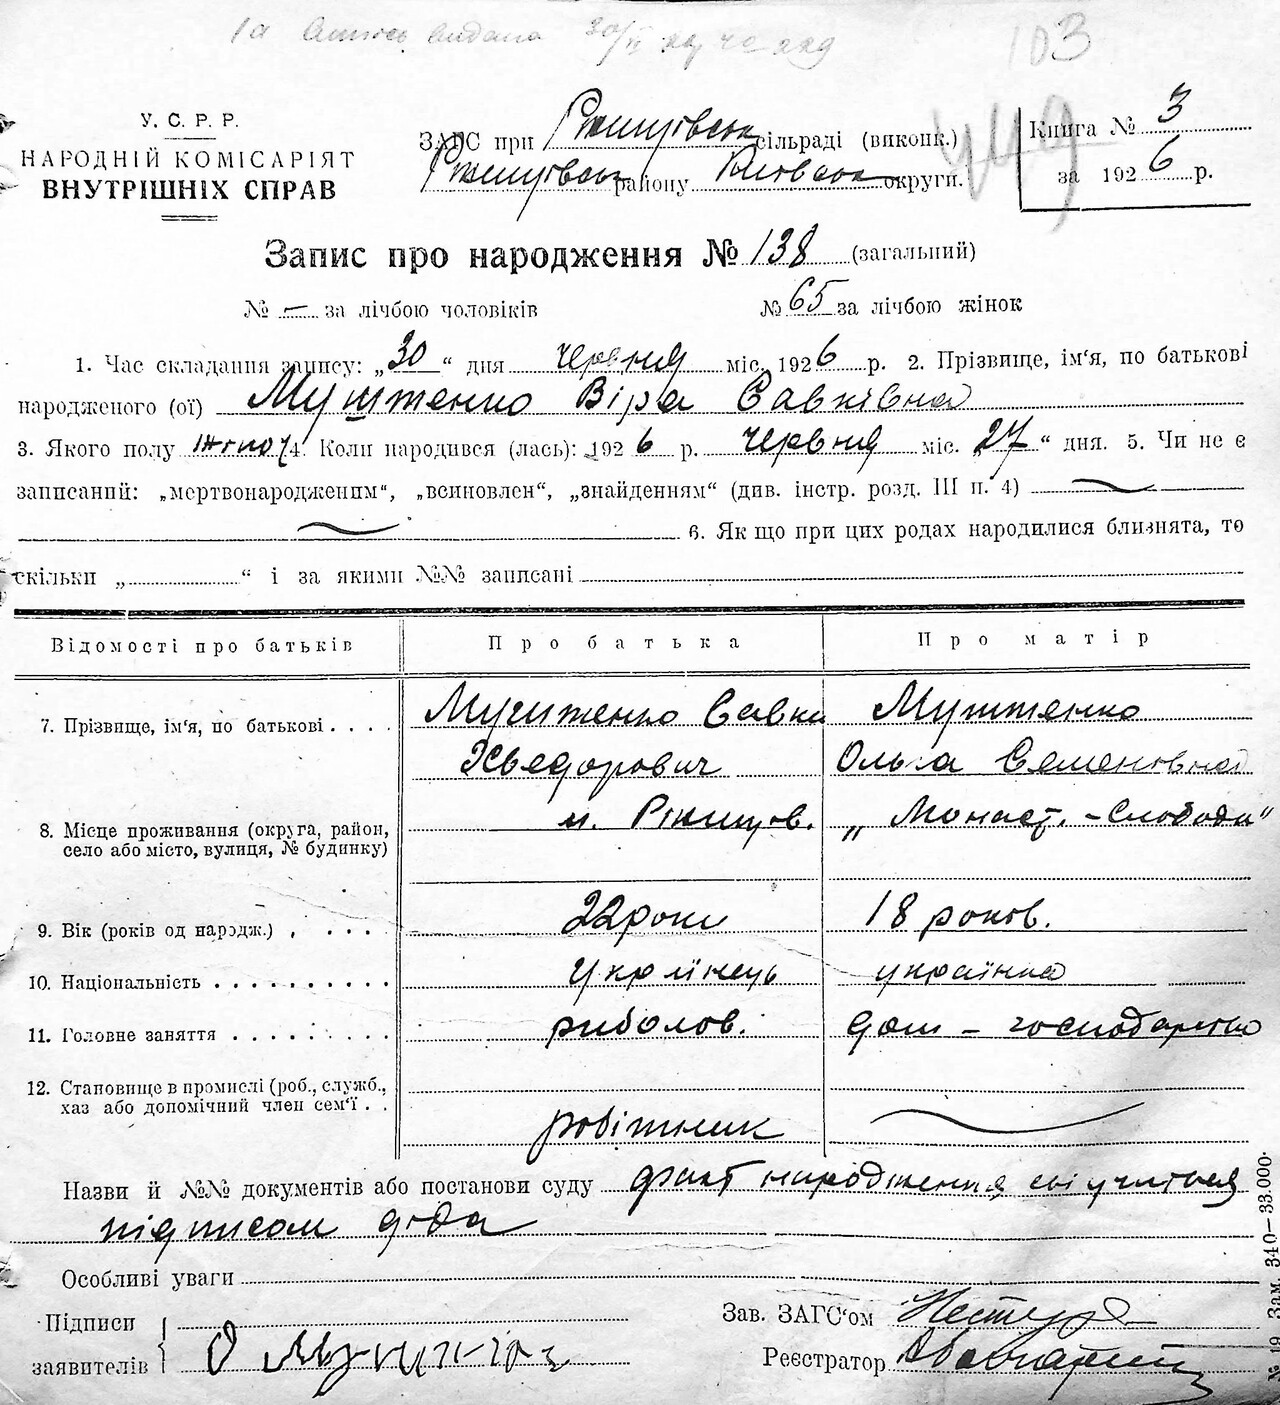 103
У. С. Р. Р.
НАРОДНІЙ КОМІСАРІЯТ
ВНУТРІШНІХ СПРАВ
ЗАГС при Ржищівськ сільраді (виконк.)
Ржищівськ району Київськ округи.
Книга № 3
за 1926 р.
Запис про народження № 138 (загальний)
№ — за лічбою чоловіків № 65 за лічбою жінок
1. Час складання запису: „30“ дня червня міс. 1926 р. 2. Прізвище, ім'я, по батькові
народженого (ої) Мушտенко Віра Савківна
3. Якого полу жіноч 4. Коли народився (лась): 1926 р. червня міс. 27“ дня. 5. Чи не є
записаний: „мертвонародженим“, „всиновлен“, „знайденням“ (див. інстр. розд. III п. 4)
6. Як що при цих родах народилися близнята, то
скільки „ “ і за якими №№ записані
Відомості про батьків Про батька Про матір
7. Прізвище, ім'я, по батькові . . . . Савка
Хведорович Ольга Семеновна
8. Місце проживання (округа, район,
село або місто, вулиця, № будинку)
м. Ржищів. „Монаст. - Слобода“
9. Вік (років од народж.) . . . . 22 роки 18 років.
10. Національність . . . . . . . . . . українець українка
11. Головне заняття . . . . . . . . риболов. дом - господарство
12. Становище в промислі (роб., служб.,
хаз або допомічний член сем'ї . .
робітник
Назви й №№ документів або постанови суду факт народження свідчиться
підписом діда
Особливі уваги
Підписи
заявителів
Зав. ЗАГС'ом
Реєстратор
№ 19. Зам. 340—33.000.